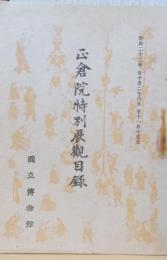 昭和二十二年 自十月二十六日 至十一月十日
正倉院特別展観目録
國立博物館